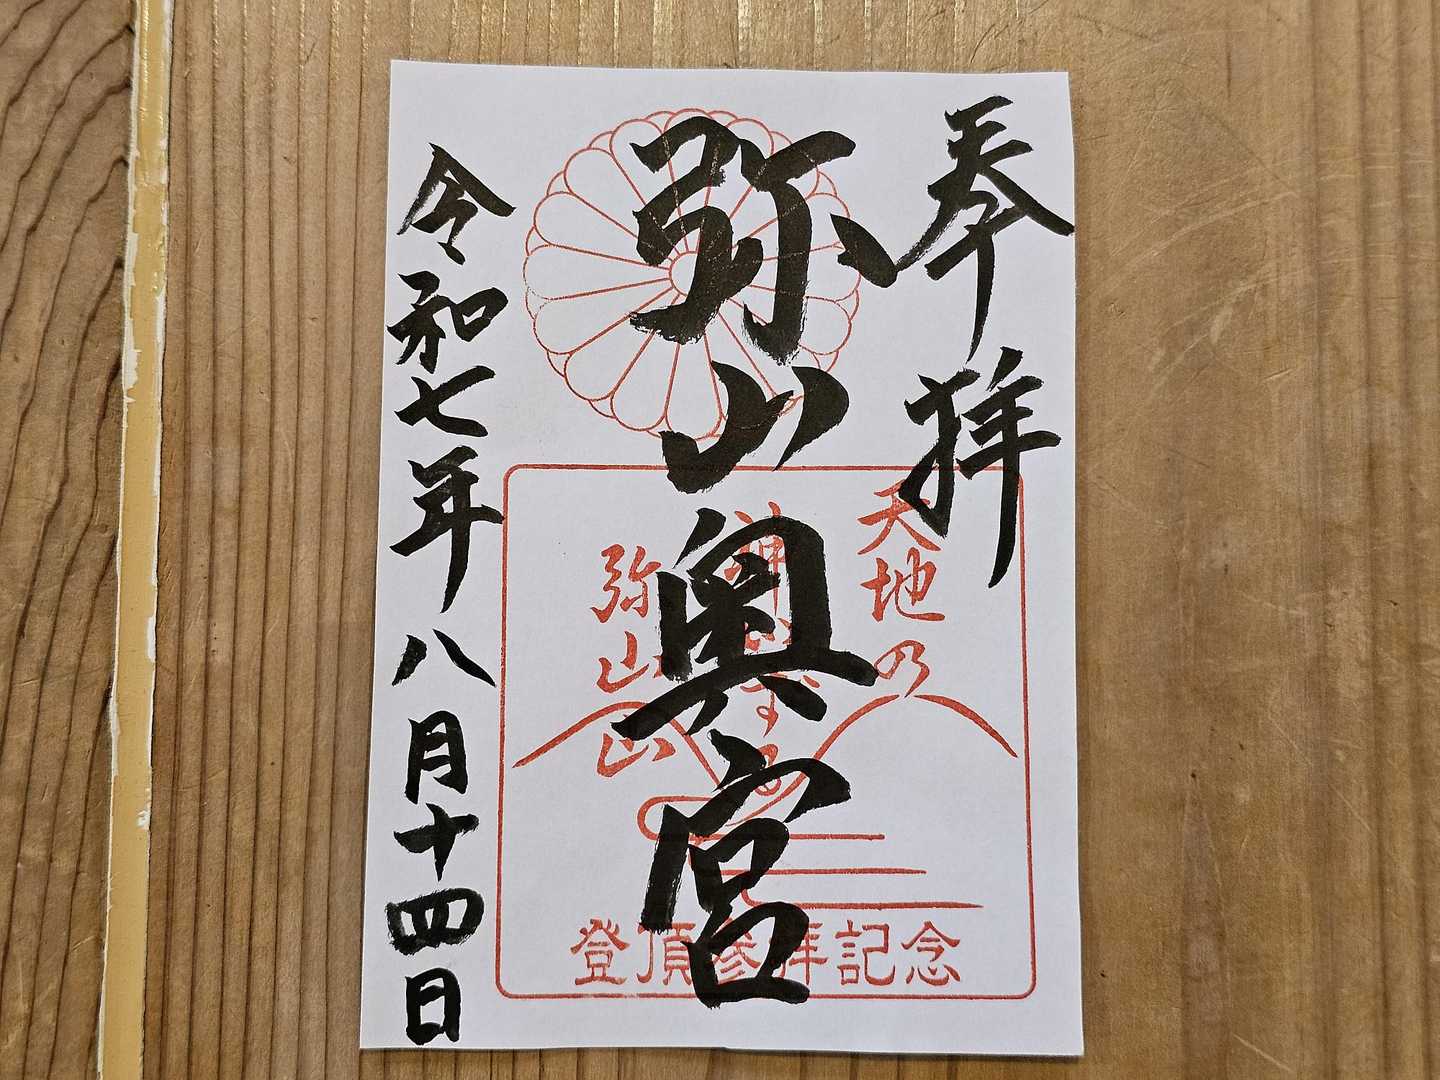 奉拝
弥山奥宮
令和七年八月十四日
天地の
弥山山
登頂参拝記念